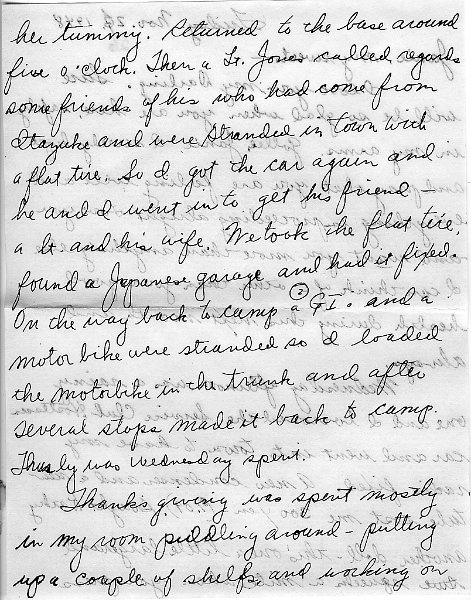 her tummy. Returned to the base around
five o'clock. Then a Lt. Jones called regards
some friends of his who had come from
Itazuke and were stranded in town with
a flat tire. So I got the car again and
he and I went in to get his friend –
a Lt. and his wife. We took the flat tire,
found a Japanese garage and had it fixed.
On the way back to camp a G.I. and a
motor bike were stranded so I loaded
the motorbike in the trunk and after
several stops made it back to camp.
Thusly was Wednesday spent.
Thanksgiving was spent mostly
in my room puddling around – putting
up a couple of shelfs and working on